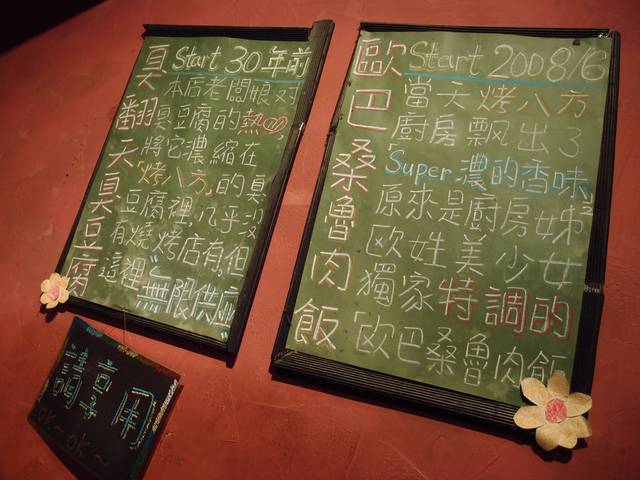 臭翻天臭豆腐
Start 30年前
本店老闆娘对
臭豆腐的熱心
將它濃縮在
「烤八方」的臭
豆腐裡,几乎没
有燒烤店有,但
這裡"無限供應
歐巴桑魯肉飯
Start 2008/6
當天烤八方
廚房飄出了
Super濃的香味
原來是廚房姊
歐姓美少女
獨家特調的
「歐巴桑魯肉飯
請享用
OK~OK~